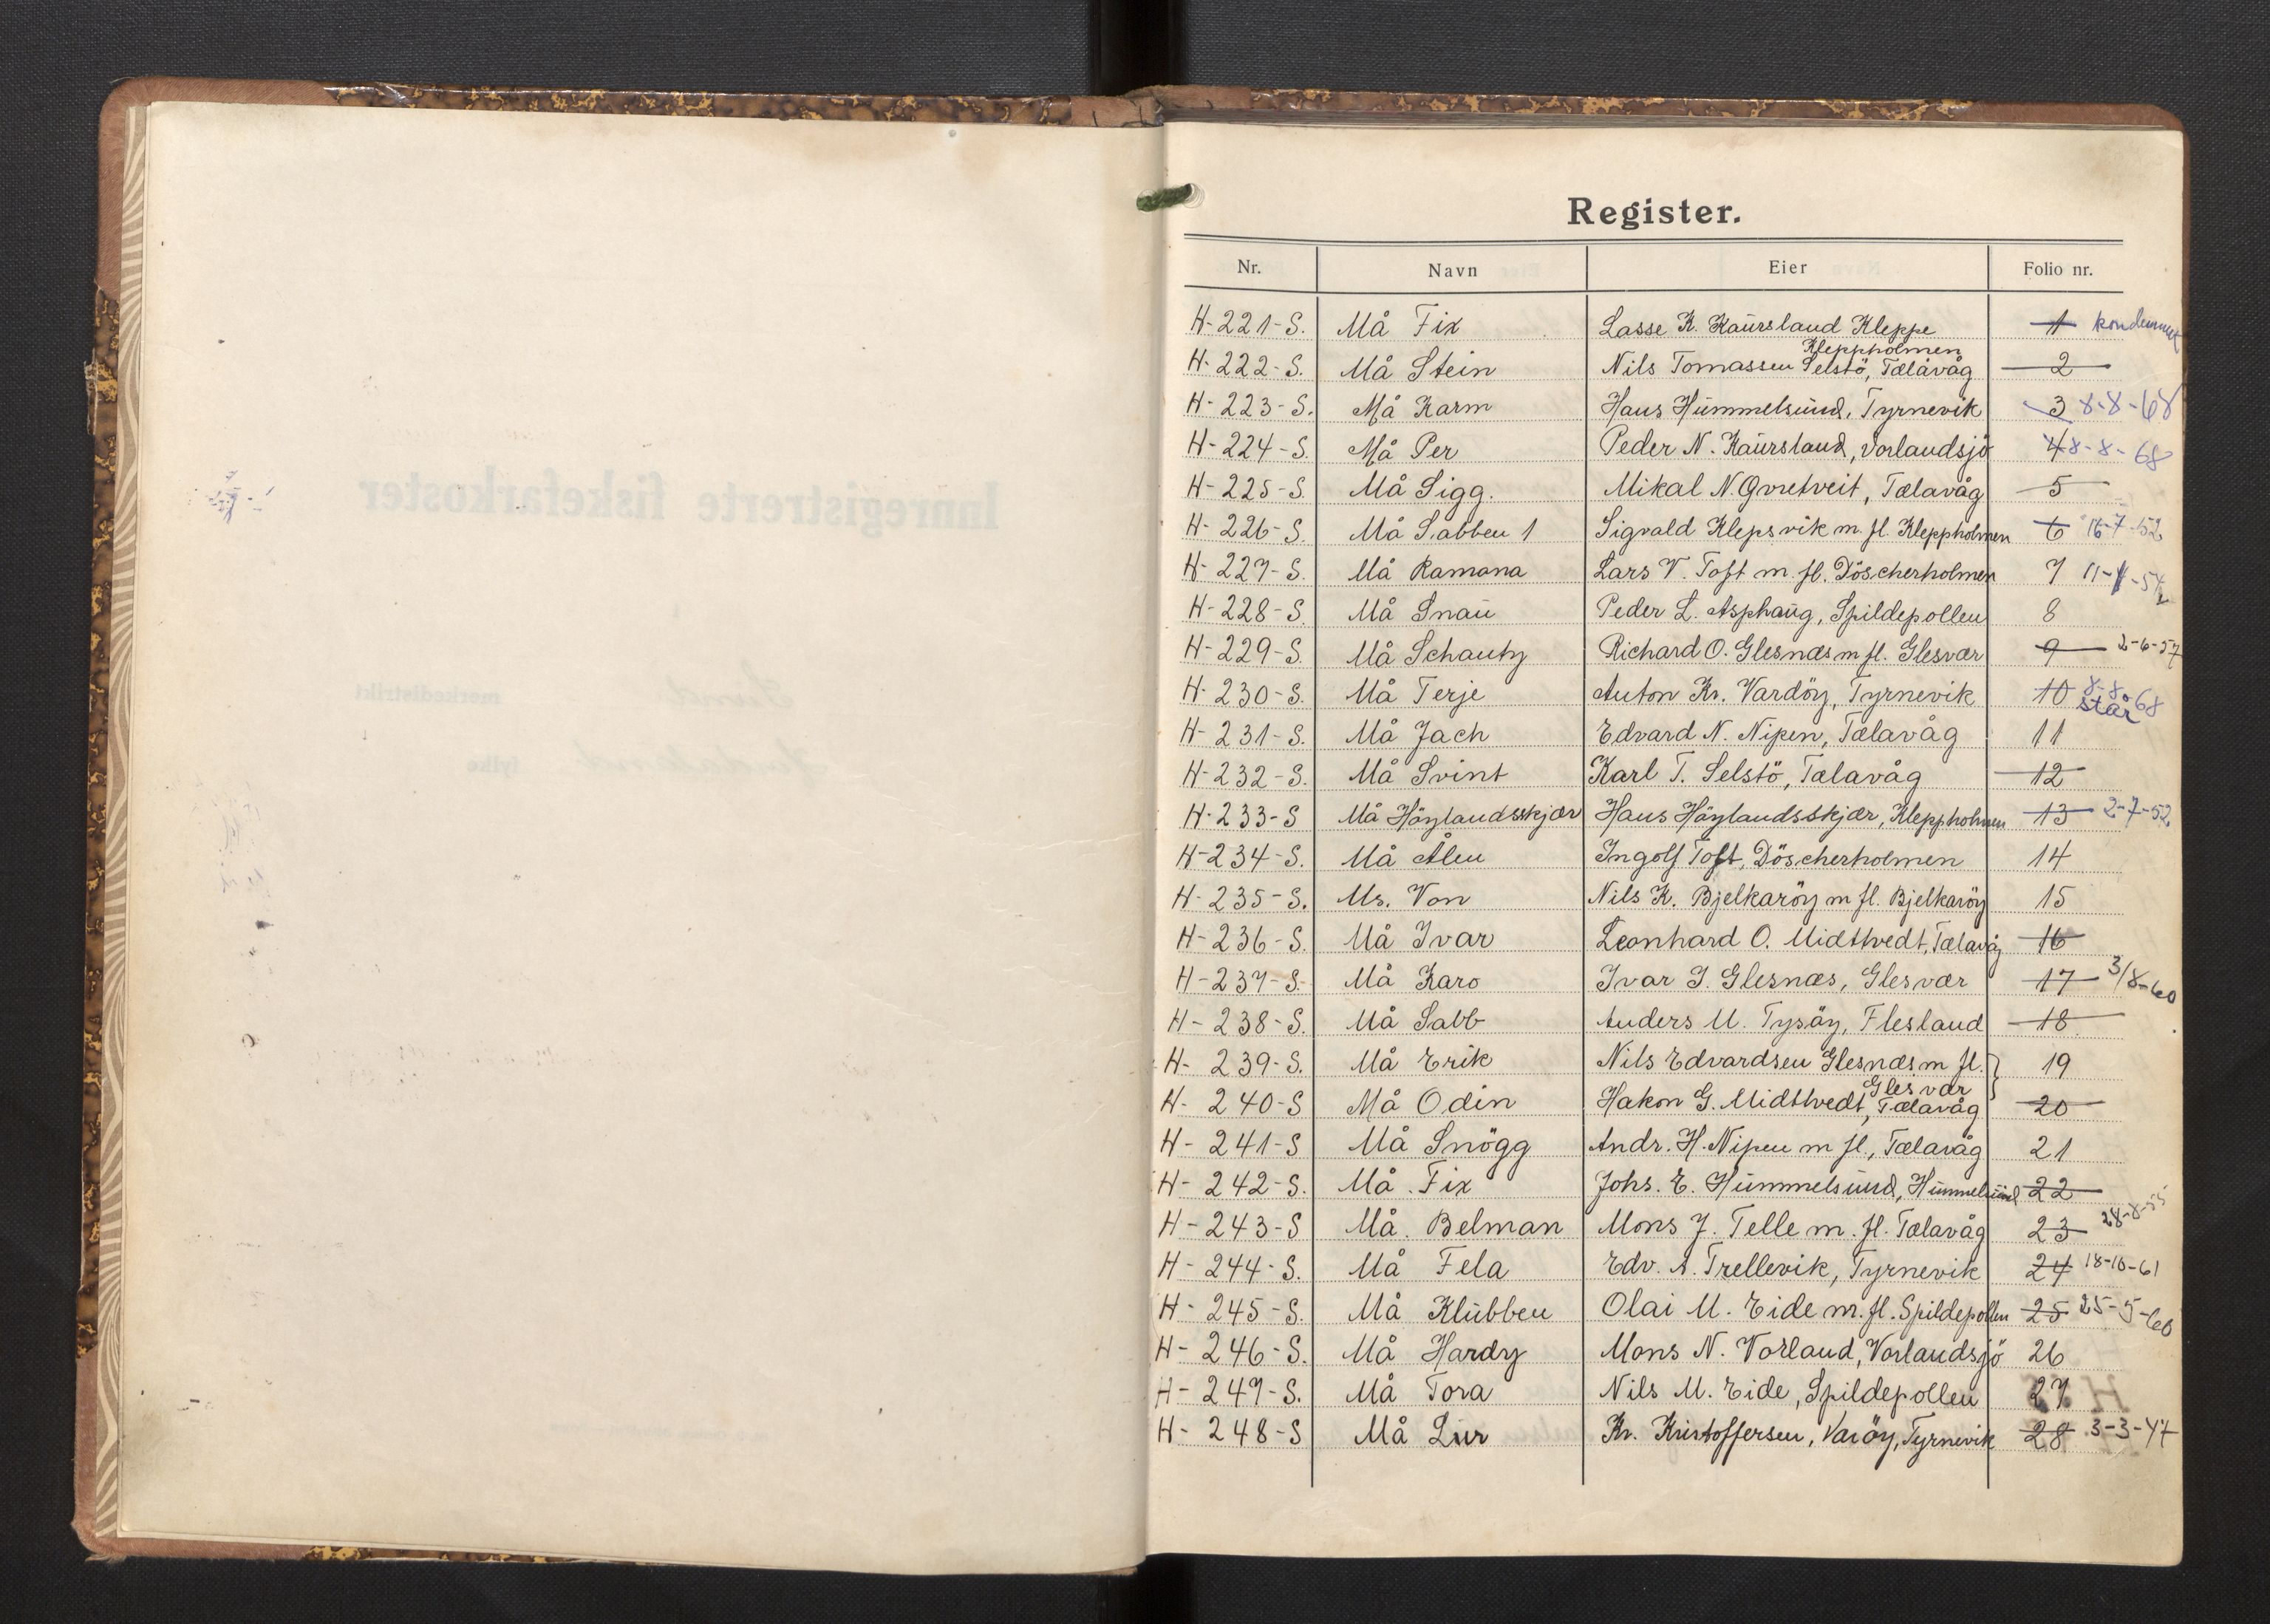 Register.
Nr. Navn Eier Folio nr.
H-221-S. Må Fix Lasse K. Kaursland Kleppe 1
Kleppholmen
H-222-S. Må Stein Nils Tomassen Selstö, Tælavåg 2
H-223-S. Må Karm Hans Hummelsund, Tyrnevik 3 8-8-68
H-224-S. Må Per Peder N. Kaursland, Vorlandsjö 4 8-8-68
H-225-S. Må Sigg. Mikal N. Qvretveit, Tælavåg 5
H-226-S. Må Sabben 1 Sigvald Klepsvik m. fl. Kleppholmen 6 16-7-52
H-227-S. Må Ramona Lars V. Toft m. fl. Döscherholmen 7
H-228-S. Må Snau Peder L. Asphaug, Spildepollen 8
H-229-S. Må Schauty Richard O. Glesnæs m fl. Glesvær 9 2-6-57
H-230-S. Må Terje Anton Kr. Vardöy, Tyrnevik 10 8-8-68
står
H-231-S. Må Jach Edvard N. Nipen, Tælavåg 11
H-232-S. Må Svint Karl T. Selstö, Tælavåg 12
H-233-S Må Höylandsskjær Hans Höylandsskjær, Kleppholmen 13 2-7-52
H-234-S. Må Ålen Ingolf Toft, Döscherholmen 14
H-235-S. Ms. Von Nils K. Bjelkaröy m fl. Bjelkaröy 15
H-236-S. Må Ivar Leonhard O. Midttvedt, Tælavåg 16
H-237-S. Må Karo Ivar J. Glesnæs, Glesvær 17 3/8-60
H-238-S. Må Sabb Anders M. Tysöy, Flesland 18
H-239-S. Må Erik Nils Edvardsen Glesnæs m fl. 19
Glesvær
H-240-S Må Odin Hakon G. Midttvedt, Tælavåg 20
H-241-S Må Snögg Andr. H. Nipen m fl., Tælavåg 21
H-242-S. Må. Fix Johs. E. Hummelsund, Hummelsund 22
H-243-S Må. Belman Mons J. Telle m. fl. Tælavåg 23 28-8-55
H-244-S. Må Fela Edv. A. Trellevik, Tyrnevik 24 18-10-61
H-245-S. Må Klubben Olai M. Eide m. fl. Spildepollen 25 25-5-60
H-246-S. Må Hardy Mons N. Vorland, Vorlandsjö 26
H-247-S. Må Tora Nils M. Eide, Spildepollen 27
H-248-S Må Lur Kr. Kristoffersen, Varöy, Tyrnevik 28 3-3-47